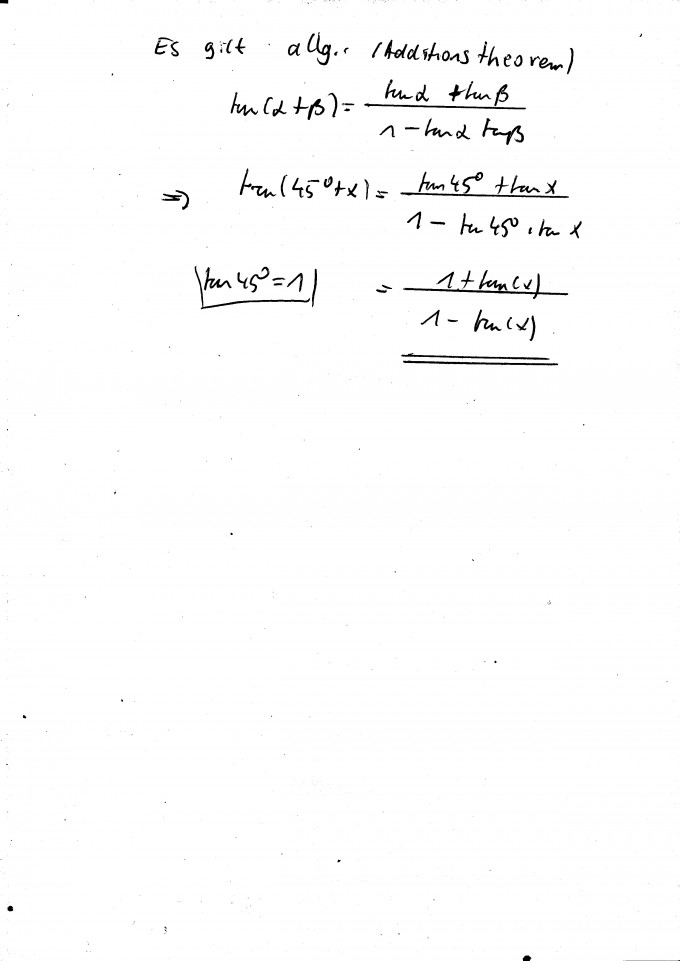 Es gilt allg.: (Additionstheorem)
tan(α+β) = (tan α + tan β) / (1 - tan α tan β)
=> tan(45°+x) = (tan 45° + tan x) / (1 - tan 45° · tan x)
|tan 45° = 1| = (1 + tan(x)) / (1 - tan(x))